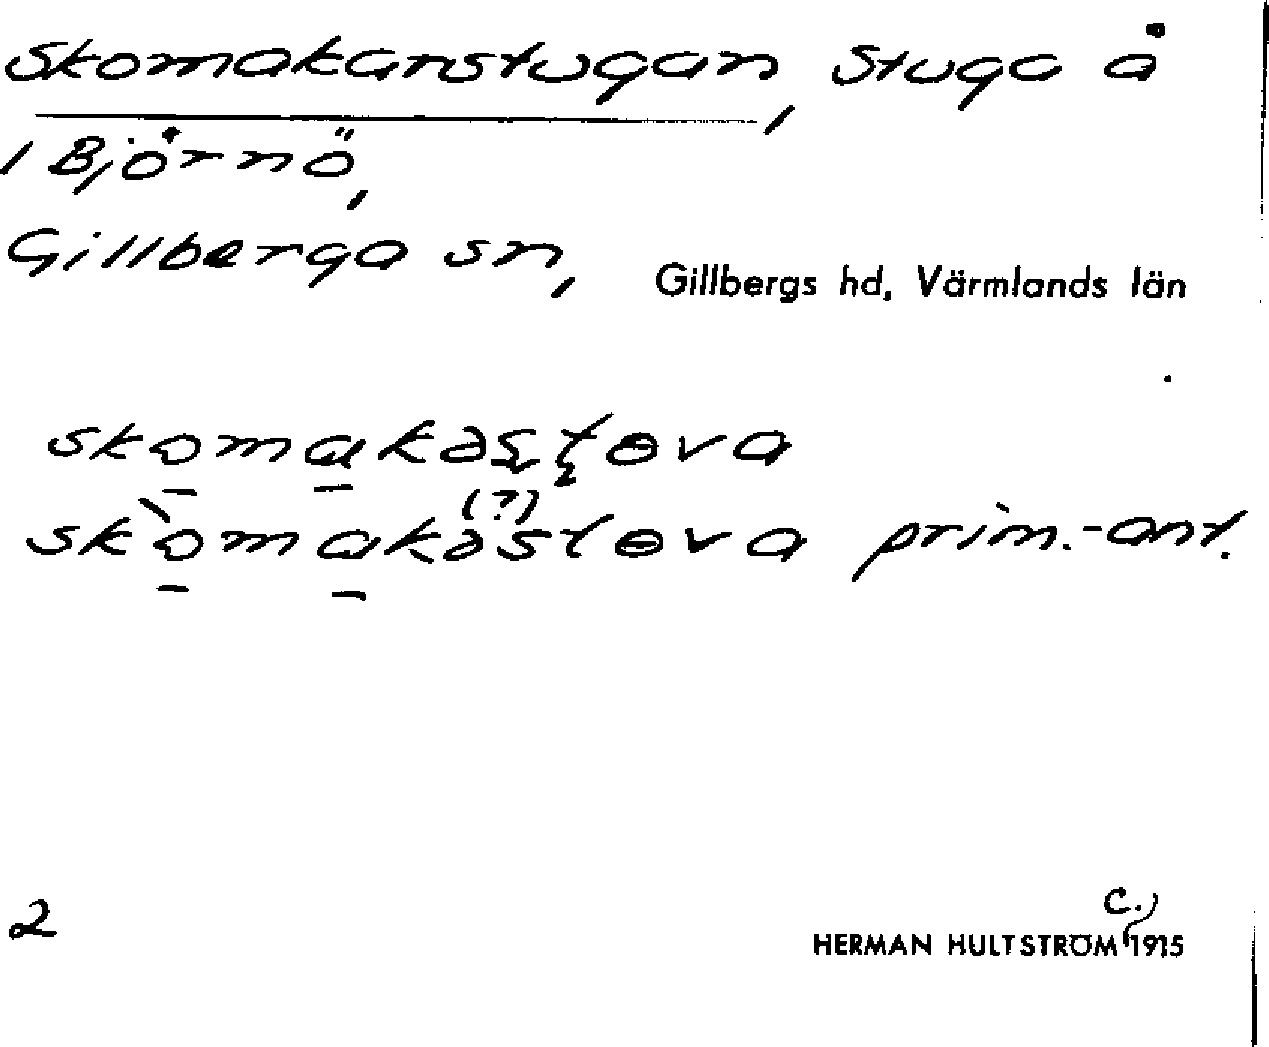 Skomakarstugan, stuga å
i Björnö,
Gillberga sn, Gillbergs hd, Värmlands län
skomakəstɵva
(?)
skòmakəstɵva prim.-ant.
2
c.
HERMAN HULTSTRÖM 1915